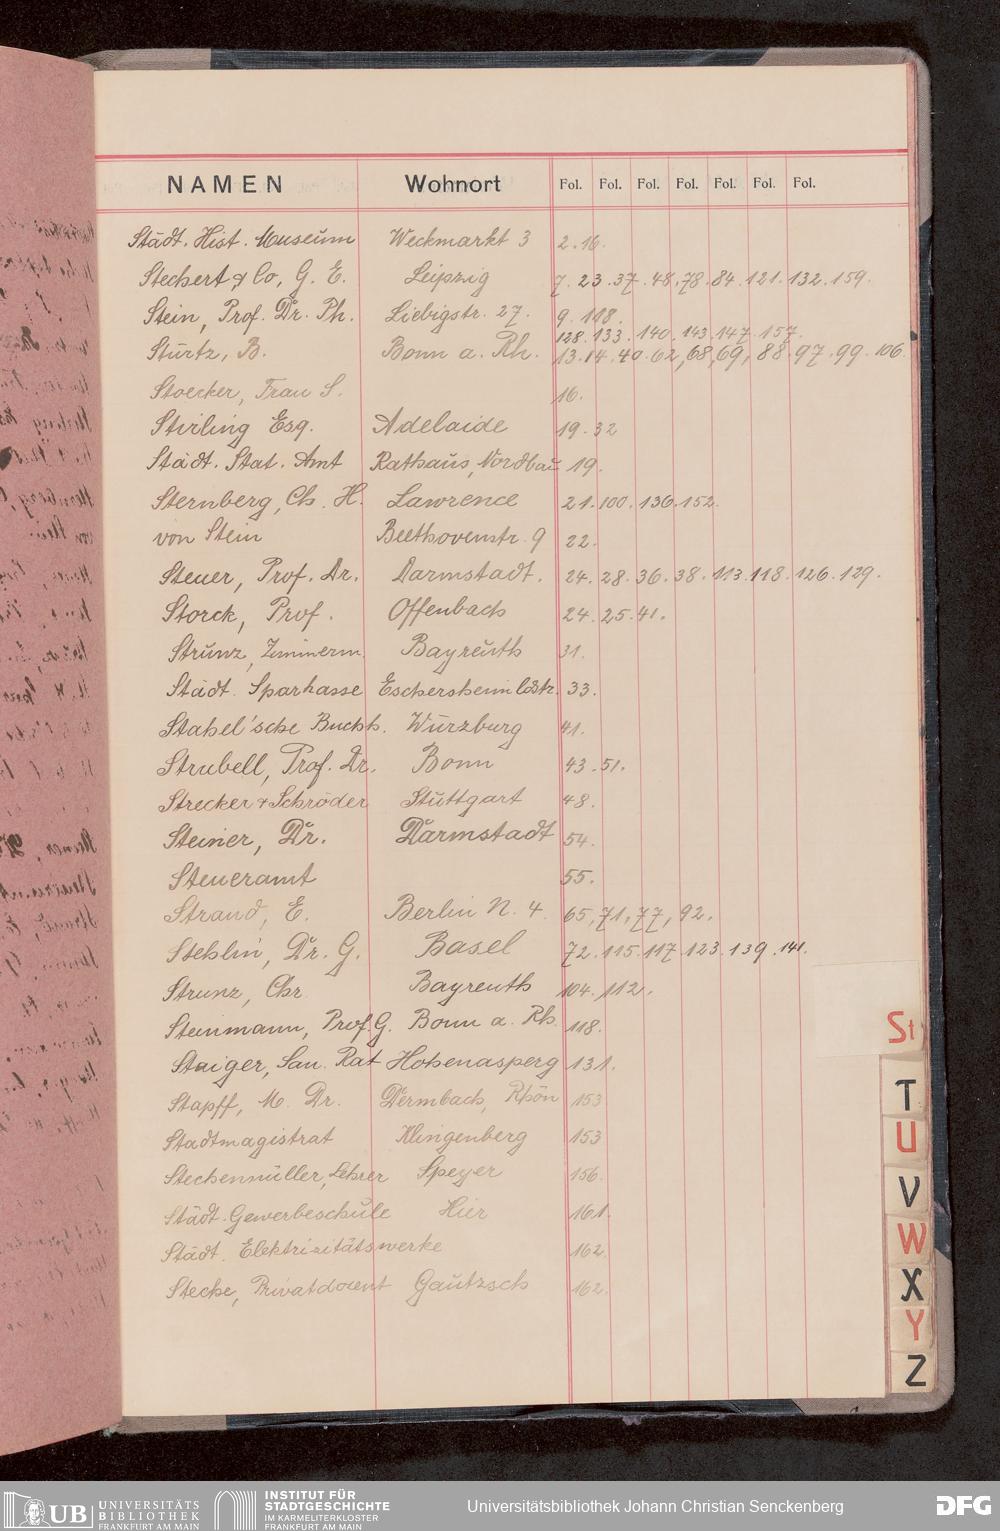 NAMEN Wohnort Fol. Fol. Fol. Fol. Fol. Fol. Fol.
Städt. Hist. Museum Weckmarkt 3 2. 16.
Stechert & Co, G. E. Leipzig 7. 23. 37. 48. 78. 84. 121. 132. 159.
Stein, Prof. Dr. Ph. Liebigstr. 27. 9. 118.
128. 133. 140. 143. 147. 157.
Stürtz, B. Bonn a. Rh. 13. 14. 40. 62, 68, 69, 88. 97. 99. 106.
Stoecker, Frau S. 16.
Stirling Esq. Adelaide 19. 32
Städt. Stat. Amt Rathaus, Nordbau 19.
Sternberg, Ch. H. Lawrence 21. 100. 136. 152.
von Stein Beethovenstr. 9 22.
Steuer, Prof. Dr. Darmstadt. 24. 28. 36. 38. 113. 118. 126. 129.
Storck, Prof. Offenbach 24. 25. 41.
Strunz, Zimmerm. Bayreuth 31.
Städt. Sparkasse Eschersheim Ldstr. 33.
Stahel'sche Buchh. Würzburg 41.
Strubell, Prof. Dr. Bonn 43. 51.
Strecker & Schröder Stuttgart 48.
Steiner, Dr. Darmstadt 54.
Steueramt 55.
Strand, E. Berlin N. 4. 65, 71, 77, 92.
Stehlin, Dr. G. Basel 72. 115. 117. 123. 139. 141.
Strunz, Chr. Bayreuth 104. 112.
Steinmann, Prof. G. Bonn a. Rh. 118.
Staiger, San. Rat Hohenasperg 131.
Stapff, M. Dr. Dermbach, Rhön 153
Stadtmagistrat Klingenberg 153
Stechenmüller, Lehrer Speyer 156.
Städt. Gewerbeschule Hier 161.
Städt. Elektrizitätswerke 162.
Steche, Privatdozent Gautzsch 162.
St
T
U
V
W
X
Y
Z
UB UNIVERSITÄTS
BIBLIOTHEK
FRANKFURT AM MAIN
INSTITUT FÜR
STADTGESCHICHTE
IM KARMELITERKLOSTER
FRANKFURT AM MAIN
Universitätsbibliothek Johann Christian Senckenberg
DFG